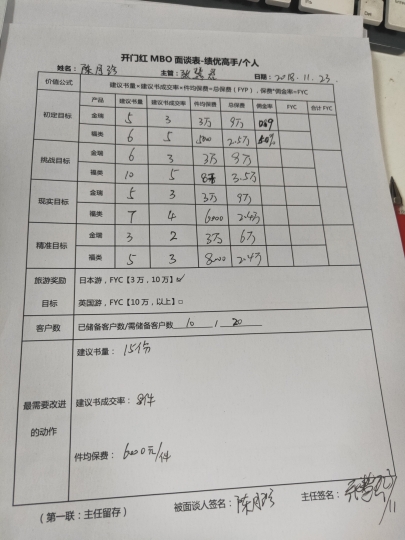 开门红 MBO 面谈表-绩优高手/个人
姓名： 陈月 主管： 日期：2018.11.23.
价值公式 建议书量×建议书成交率×件均保费=总保费（FYP），保费*佣金率=FYC
产品 建议书量 建议书成交率 件均保费 总保费 佣金率 FYC 合计 FYC
初定目标 金瑞 5 3 3万 9万
福类 6 5 5000 2.5万
挑战目标 金瑞 6 3 3万 9万
福类 10 5 3.5万
现实目标 金瑞 5 3 3万 9万
福类 7 4 6000 2.4万
精准目标 金瑞 3 2 3万 6万
福类 5 3 8000 2.4万
旅游奖励 日本游，FYC【3 万，10 万】☑
目标 英国游，FYC【10 万，以上】□
客户数 已储备客户数/需储备客户数 10 / 20
建议书量： 15份
最需要改进 建议书成交率： 8件
的动作
件均保费： 6000元/件
（第一联：主任留存） 被面谈人签名： 陈月 主任签名：